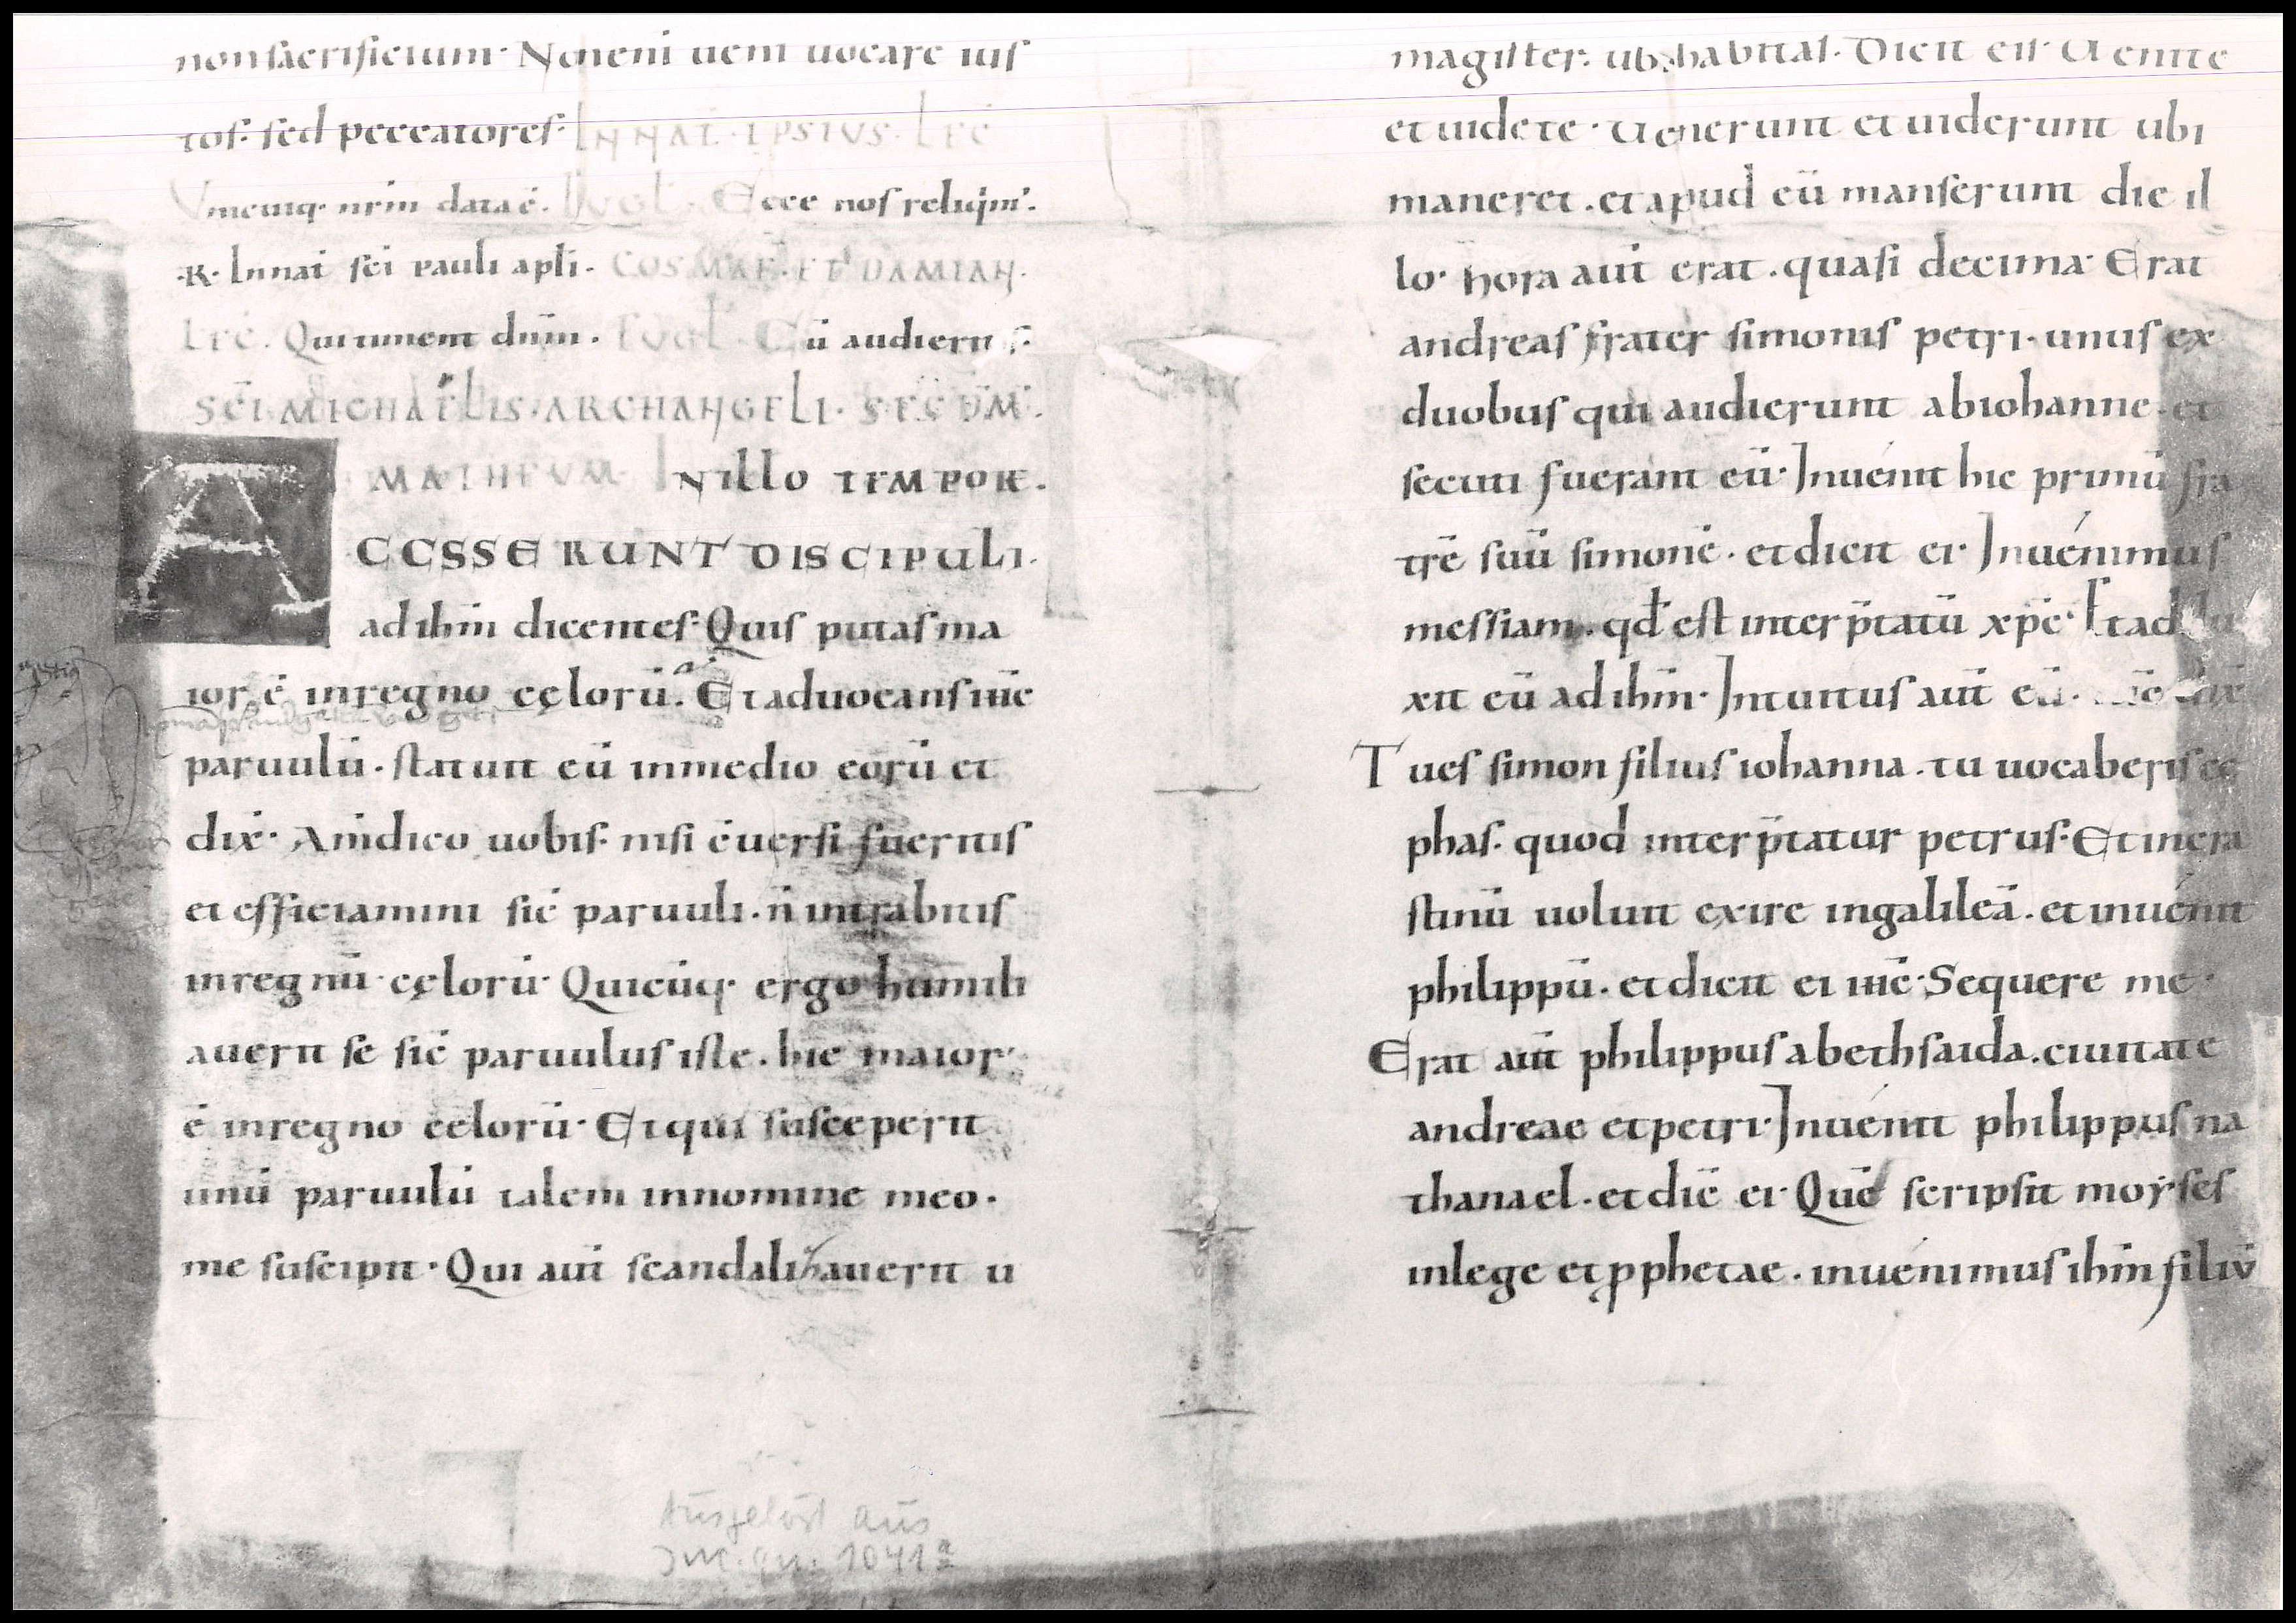 non sacrificium· Non eni ueni uocare ius
tos· sed peccatores· IN NAT̄· IPSIUS· LEC̄
Unicuiq· nr̄m data ē· EUGL̄· Ecce nos reliq̇m'·
·R· In nat̄ sc̄i pauli apl̄i· COSMAE· ET DAMIAN·
LEC̄· Qui timent dn̄m· EUGL̄· Cū audierit s·
SC̄I MICHAELIS· ARCHANGELI· SECUM̄·
MATHEUM· IN ILLO TEMPOR̄·
ACCESSERUNT DISCIPULI·
ad ihm̄ dicentes· Quis putas ma
ior ē in regno cęlorū· Et aduocans ih̄c
paruulū· statuit eū in medio eorū et
dix̄· Am̄ dico uobis· nisi c̄uersi fueritis
et efficiamini sic̄ paruuli· n̄ intrabitis
in regnū cęlorū· Quicūq· ergo humili
auerit se sic̄ paruulus iste· hic maior
ē in regno celorū· Et qui susceperit
unū paruulū talem in nomine meo·
me suscipit· Qui aut̄ scandalizauerit u
Ausgelöst aus
J.M. qu. 1041ª
magister· ubi habitas· Dicit eis· Uenite
et uidete· Uenerunt et uiderunt ubi
maneret· et apud eū manserunt die il
lo· hora aut̄ erat· quasi decima· Erat
andreas frater simonis petri· unus ex
duobus qui audierunt ab iohanne· et
secuti fuerant eū· Inuénit hic primū fra
trē suū simonē· et dicit ei· Inuénimus
messiam· qd̄ est interp̄tatū xp̄c· Et addu
xit eū ad ihm̄· Intuitus aut̄ eū· ih̄c dix̄
Tu es simon filius iohanna· tu uocaberis ce
phas· quod interp̄tatur petrus· Et in cra
stinū uoluit exire in galileā· et inuénit
philippū· et dicit ei ih̄c· Sequere me·
Erat aut̄ philippus a bethsaida· ciuitate
andreae et petri· Inuénit philippus na
thanael· et dic̄ ei· Quē scripsit moyses
in lege et p̱phetae· inuénimus ihm̄ filiū